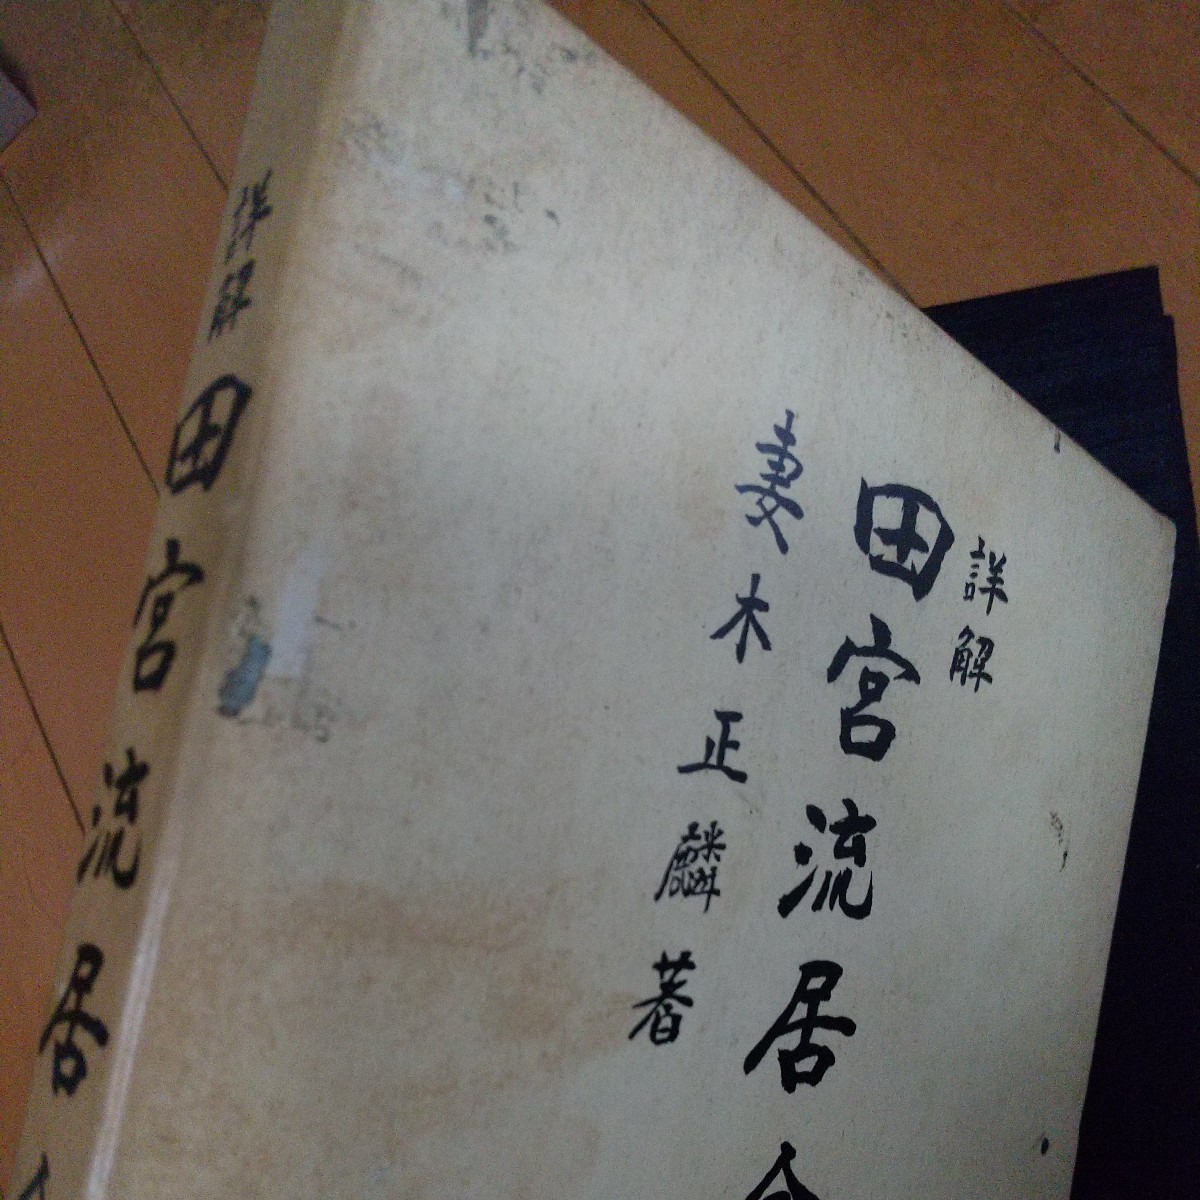 詳解
田宮流居合
妻木正麟著
詳解
田宮流居